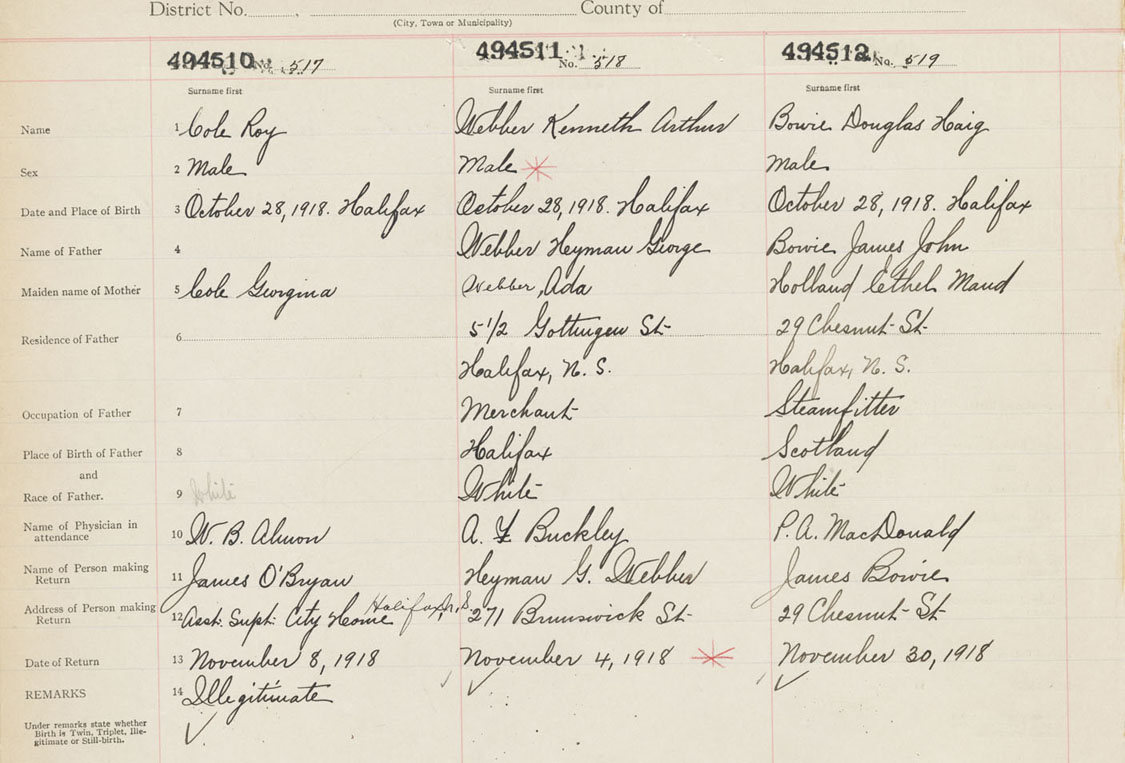 District No. County of
(City, Town or Municipality)
494510 No. 517 494511 No. 518 494512 No. 519
Surname first Surname first Surname first
Name 1 Cole Roy Webber Kenneth Arthur Bowie Douglas Haig
Sex 2 Male Male Male
Date and Place of Birth 3 October 28, 1918. Halifax October 28, 1918. Halifax October 28, 1918. Halifax
Name of Father 4 Webber Heyman George Bowie James John
Maiden name of Mother 5 Cole Georgina Webber, Ada Holland Ethel Maud
Residence of Father 6 51/2 Gottingen St. 29 Chesnut St.
Halifax, N. S. Halifax, N. S.
Occupation of Father 7 Merchant Steamfitter
Place of Birth of Father 8 Halifax Scotland
and
Race of Father. 9 White White White
Name of Physician in attendance 10 W. B. Almon A. F. Buckley P. A. MacDonald
Name of Person making Return 11 James O'Bryan Heyman G. Webber James Bowie
Address of Person making Return 12 Asst. Supt. City Home Halifax, N.S. 271 Brunswick St. 29 Chesnut St.
Date of Return 13 November 8, 1918 November 4, 1918 November 30, 1918
REMARKS 14 Illegitimate
Under remarks state whether
Birth is Twin, Triplet, Ille-
gitimate or Still-birth.